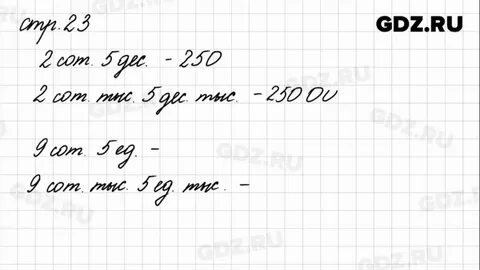 стр. 23
GDZ.RU
2 сот. 5 дес. - 250
2 сот. тыс. 5 дес. тыс. - 250 00
9 сот. 5 ед. -
GDZ.RU
9 сот. тыс. 5 ед. тыс. -
GDZ.RU